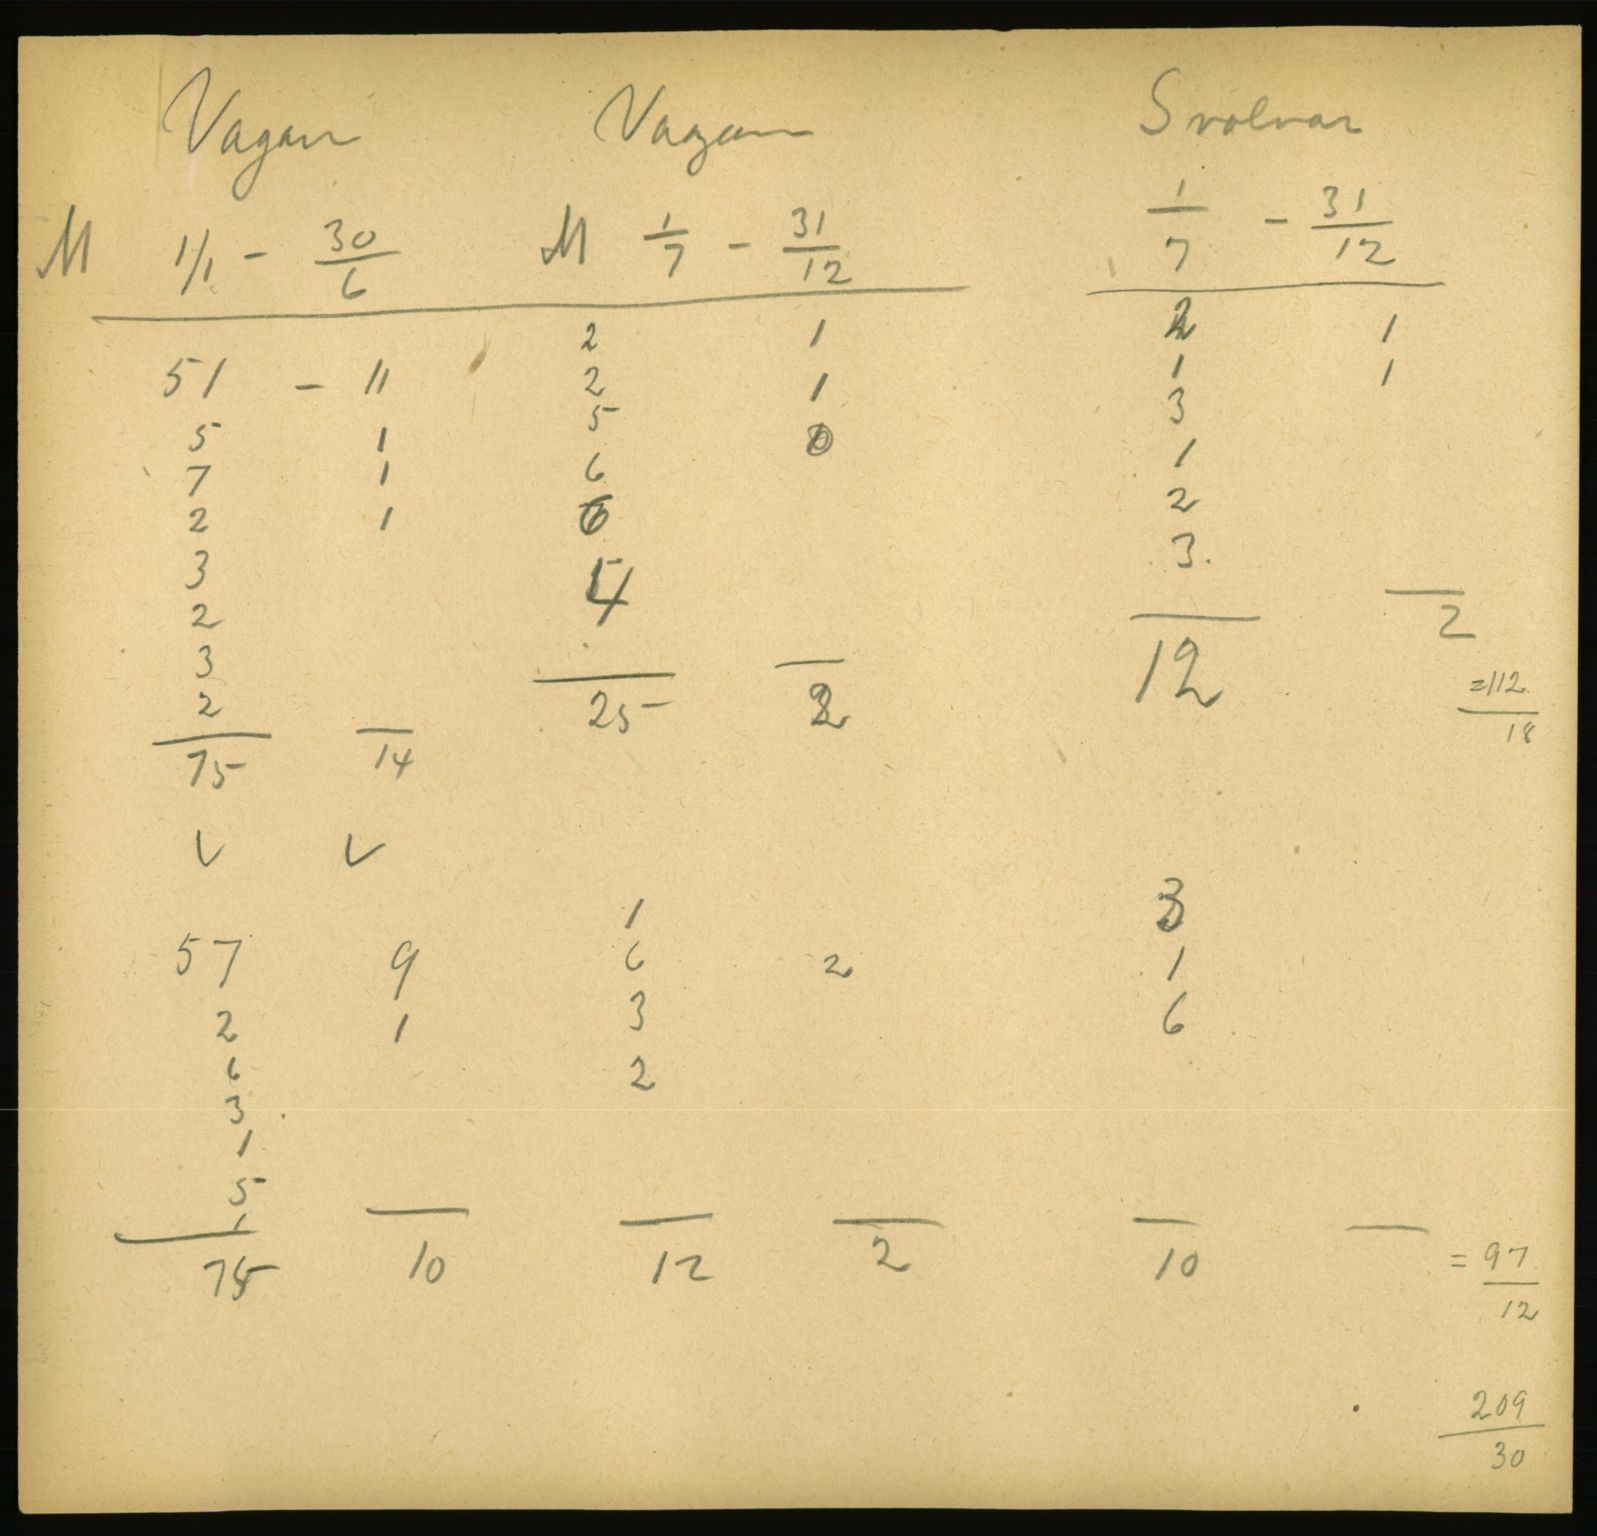 Vagan Vagan Svolvær
M 1/1 - 30/6 M 1/7 - 31/12 1/7 - 31/12
2 1 2 1
51 - 11 2 1 1 1
5 1 5 3
7 1 6 1
2 1 6 2
3 4 3.
2 12 2
3 =112/18
2 25 2
75 14
V V
1 3
57 9 6 2 1
2 1 3 6
6 2
3
1
5
1
75 10 12 2 10 = 97/12
209/30